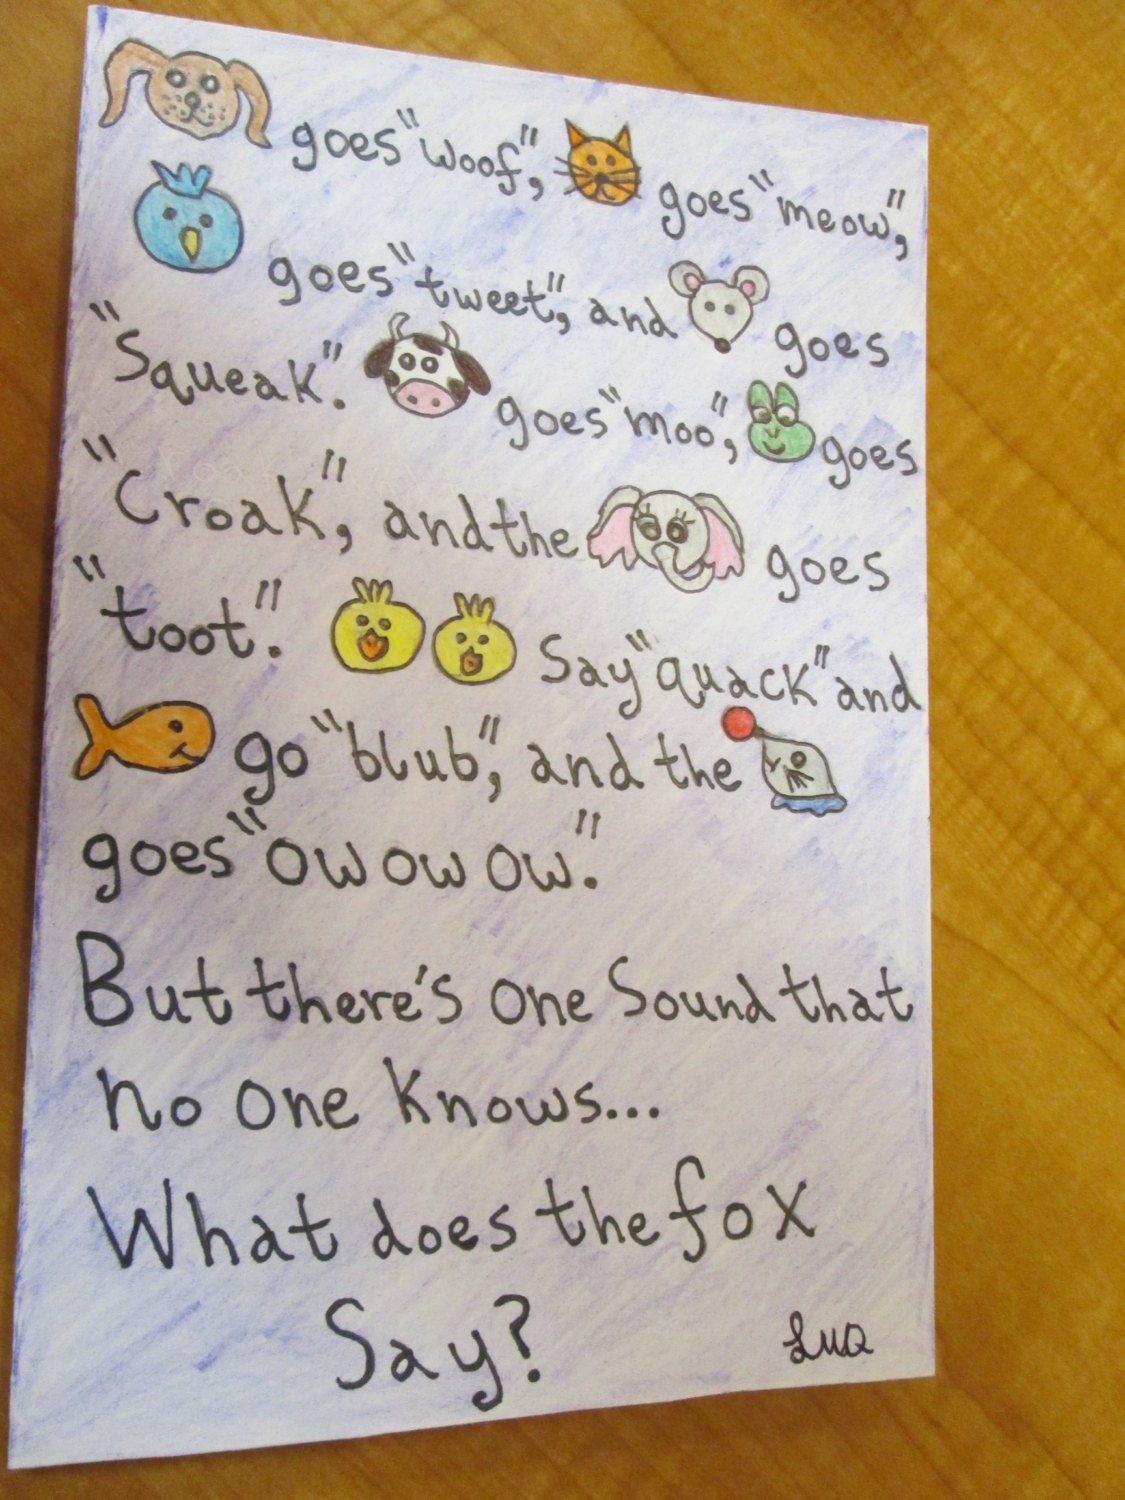 goes "woof", goes "meow",
goes "tweet", and goes
"Squeak". goes "moo", goes
"Croak", and the goes
"toot". Say "quack" and
go "blub", and the
goes "ow ow ow".
But there's one Sound that
no one knows...
What does the fox
Say?